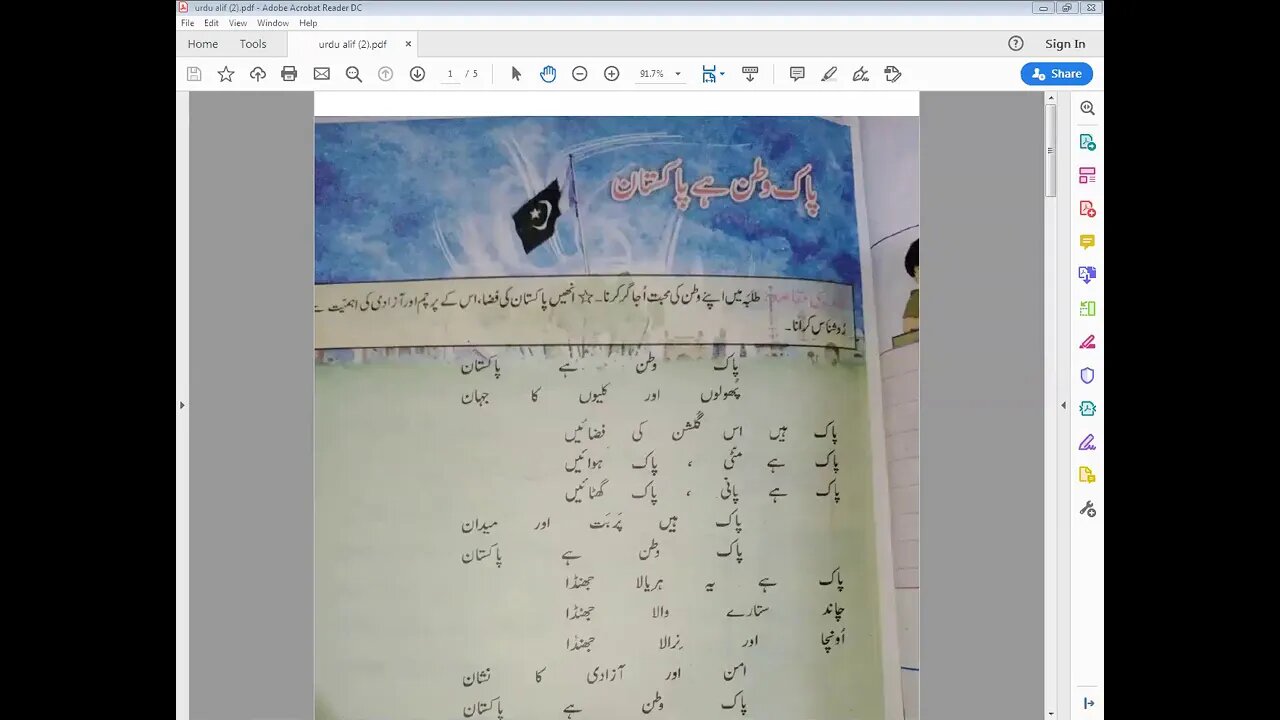 urdu alif (2).pdf - Adobe Acrobat Reader DC
File Edit View Window Help
Home Tools urdu alif (2).pdf × Sign In
1 / 5 91.7% Share
پاک وطن ہے پاکستان
طلبہ میں اپنے وطن کی محبت اُجاگر کرنا۔ ☆ انھیں پاکستان کی فضا، اس کے پرچم اور آزادی کی اہمیت سے
رُوشناس کرانا۔
پاک وطن ہے پاکستان
پُھولوں اور کلیوں کا جہان
پاک ہیں اس گُلشن کی فضائیں
پاک ہے مٹّی ، پاک ہوائیں
پاک ہے پانی ، پاک گھٹائیں
پاک ہیں پَربَت اور میدان
پاک وطن ہے پاکستان
پاک ہے یہ ہریالا جھنڈا
چاند ستارے والا جھنڈا
اُونچا اور نِرالا جھنڈا
امن اور آزادی کا نشان
پاک وطن ہے پاکستان